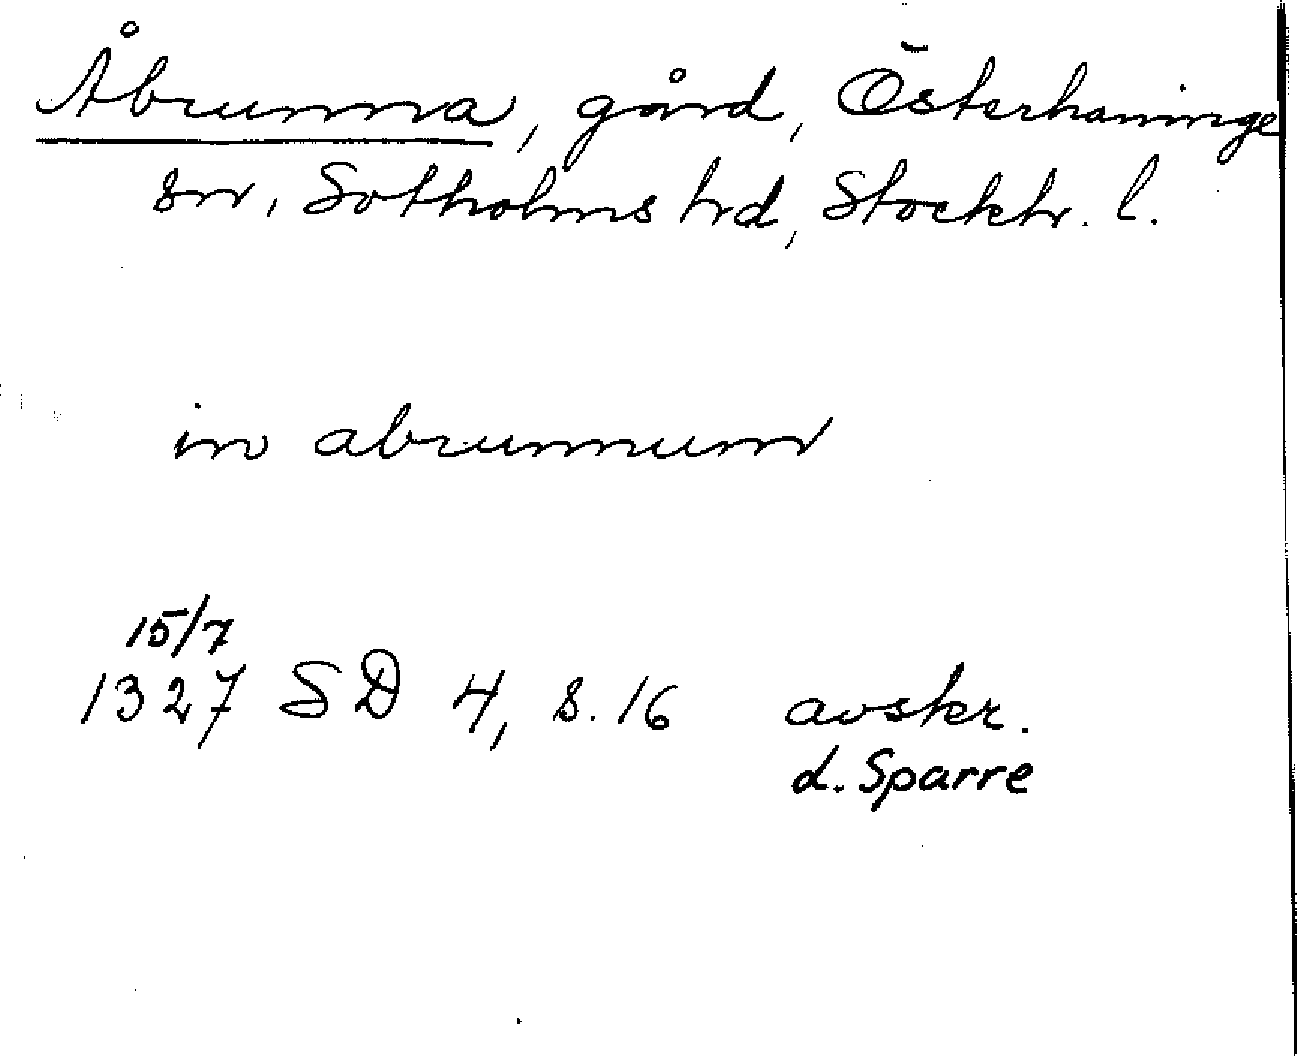 Åbrunna, gård, Österhaninge
sn, Sotholms hd, Stockh. l.
in abrunnum
15/7
1327 SD 4, s. 16 avskr.
d. Sparre